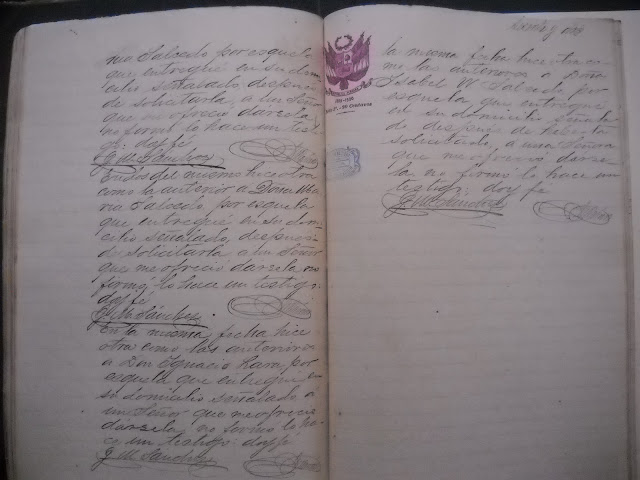 nio Salcedo por esquela
que entregué en su domi
cilio señalado, despues
de solicitarla, a un Señor
que me ofreció darsela,
no formó lo hace un tes
tigo: doy fé
J. M. Sánchez
En dos del mismo hice otra
como la anterior a Doña Ma
ria Salcedo, por esquela
que entregué en su domi
cilio señalado, despues
de solicitarla a un Señor
que me ofreció darsela no
formó, lo hace un testigo:
doy fé
J. M. Sánchez
En la misma fecha hice
otra como las anteriores
a Don Ignacio Lara, por
esquela que entregué en
su domicilio señalado a
un Señor que me ofreció
darsela, no formó lo ha
ce un testigo: doy fé
J. M. Sánchez
la misma fecha hice otra co
mo las anteriores a Doña
Isabel W. Salcedo por
esquela que entregué
en su domicilio señala
do despues de
solicitado, a una Señora
que me ofreció darse
la no formó lo hace un
testigo: doy fé
J. M. Sánchez